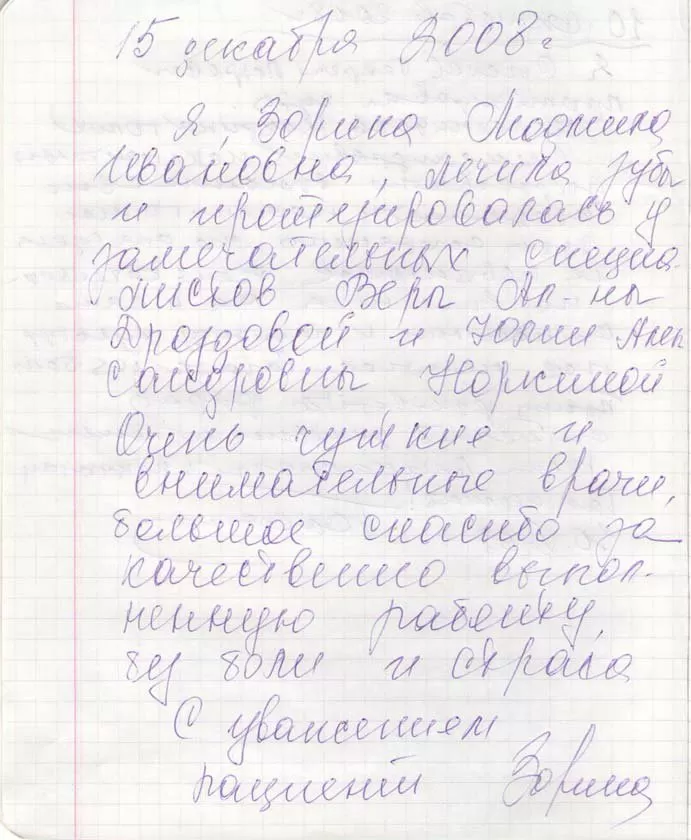 15 декабря 2008г
Я, Зорина Людмила
Ивановна, лечила зубы
и протезировалась у
замечательных специа-
листов Веры Ал-ны
Дроздовой и Юлии Алек
сандровны Норкиной
Очень чуткие и
внимательные врачи,
большое спасибо за
качественно выпол-
ненную работу,
без боли и страха
С уважением
пациент Зорина